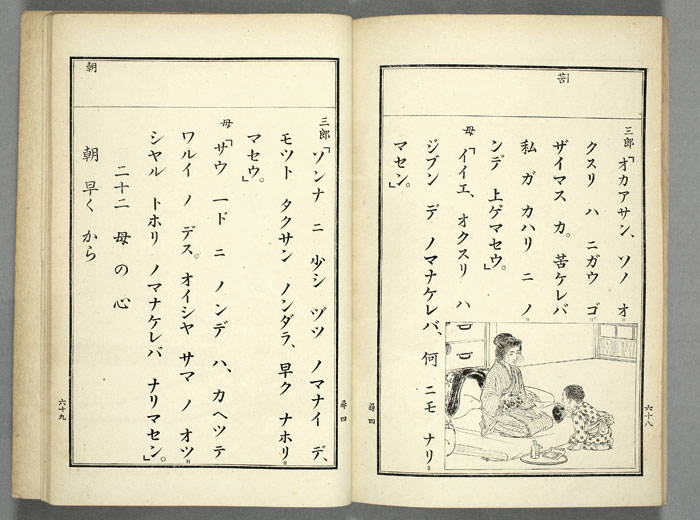 苦
三郎「オカアサン、ソノ オ
クスリ ハ ニガウ ゴ
ザイマス カ。苦ケレバ
私 ガ カハリ ニ ノ
ンデ 上ゲマセウ。」
母「イイエ、オクスリ ハ
ジブン デ ノマナケレバ、何 ニモ ナリ
マセン。」
尋四
六十八
朝
三郎「ソンナ ニ 少シ ヅツ ノマナイ デ、
モツト タクサン ノンダラ、早ク ナホリ
マセウ。」
母「サウ 一ド ニ ノンデ ハ、カヘツテ
ワルイ ノ デス。オイシヤ サマ ノ オツ
シヤル トホリ ノマナケレバ ナリマセン。」
二十二 母の心
朝 早く から
尋四
六十九